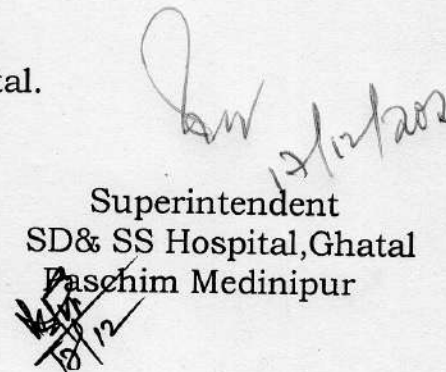 tal.
17/12/202
Superintendent
SD& SS Hospital,Ghatal
Paschim Medinipur
18/12